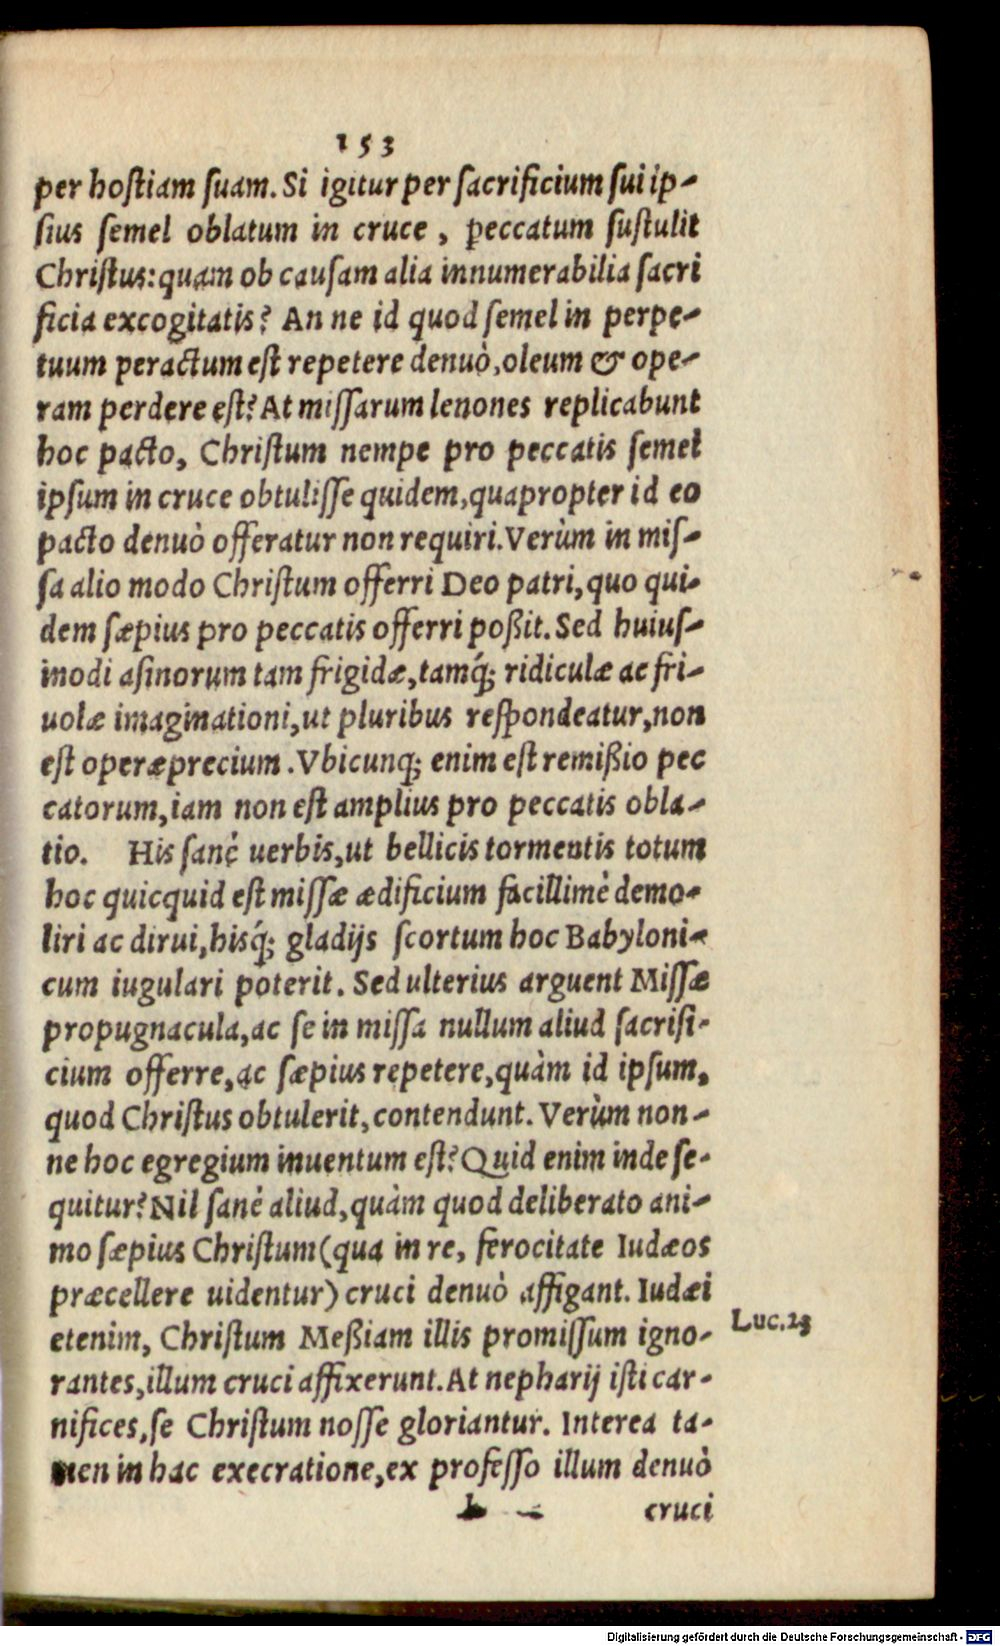 153
per hoſtiam ſuam. Si igitur per ſacrificium ſui ip-
ſius ſemel oblatum in cruce, peccatum ſuſtulit
Chriſtus: quam ob cauſam alia innumerabilia ſacri
ficia excogitatis? An ne id quod ſemel in perpe-
tuum peractum eſt repetere denuò, oleum & ope-
ram perdere eſt? At miſſarum lenones replicabunt
hoc pacto, Chriſtum nempe pro peccatis ſemel
ipſum in cruce obtuliſſe quidem, quapropter id eo
pacto denuò offeratur non requiri. Verùm in miſ-
ſa alio modo Chriſtum offerri Deo patri, quo qui-
dem ſæpius pro peccatis offerri poßit. Sed huiuſ-
modi aſinorum tam frigidæ, tamq́; ridiculæ ac fri-
uolæ imaginationi, ut pluribus reſpondeatur, non
eſt operæprecium. Vbicunq; enim eſt remißio pec
catorum, iam non eſt amplius pro peccatis obla-
tio. His ſanè uerbis, ut bellicis tormentis totum
hoc quicquid eſt miſſæ ædificium facillimè demo-
liri ac dirui, hisq́; gladijs ſcortum hoc Babyloni-
cum iugulari poterit. Sed ulterius arguent Miſſæ
propugnacula, ac ſe in miſſa nullum aliud ſacrifi-
cium offerre, ac ſæpius repetere, quàm id ipſum,
quod Chriſtus obtulerit, contendunt. Verùm non-
ne hoc egregium inuentum eſt? Quid enim inde ſe-
quitur? Nil ſanè aliud, quàm quod deliberato ani-
mo ſæpius Chriſtum (qua in re, ferocitate Iudæos
præcellere uidentur) cruci denuò affigant. Iudæi
etenim, Chriſtum Meßiam illis promiſſum igno-
Luc. 23
rantes, illum cruci affixerunt. At nepharij iſti car-
nifices, ſe Chriſtum noſſe gloriantur. Interea ta-
men in hac execratione, ex profeſſo illum denuò
cruci
Digitalisierung gefördert durch die Deutsche Forschungsgemeinschaft - DFG